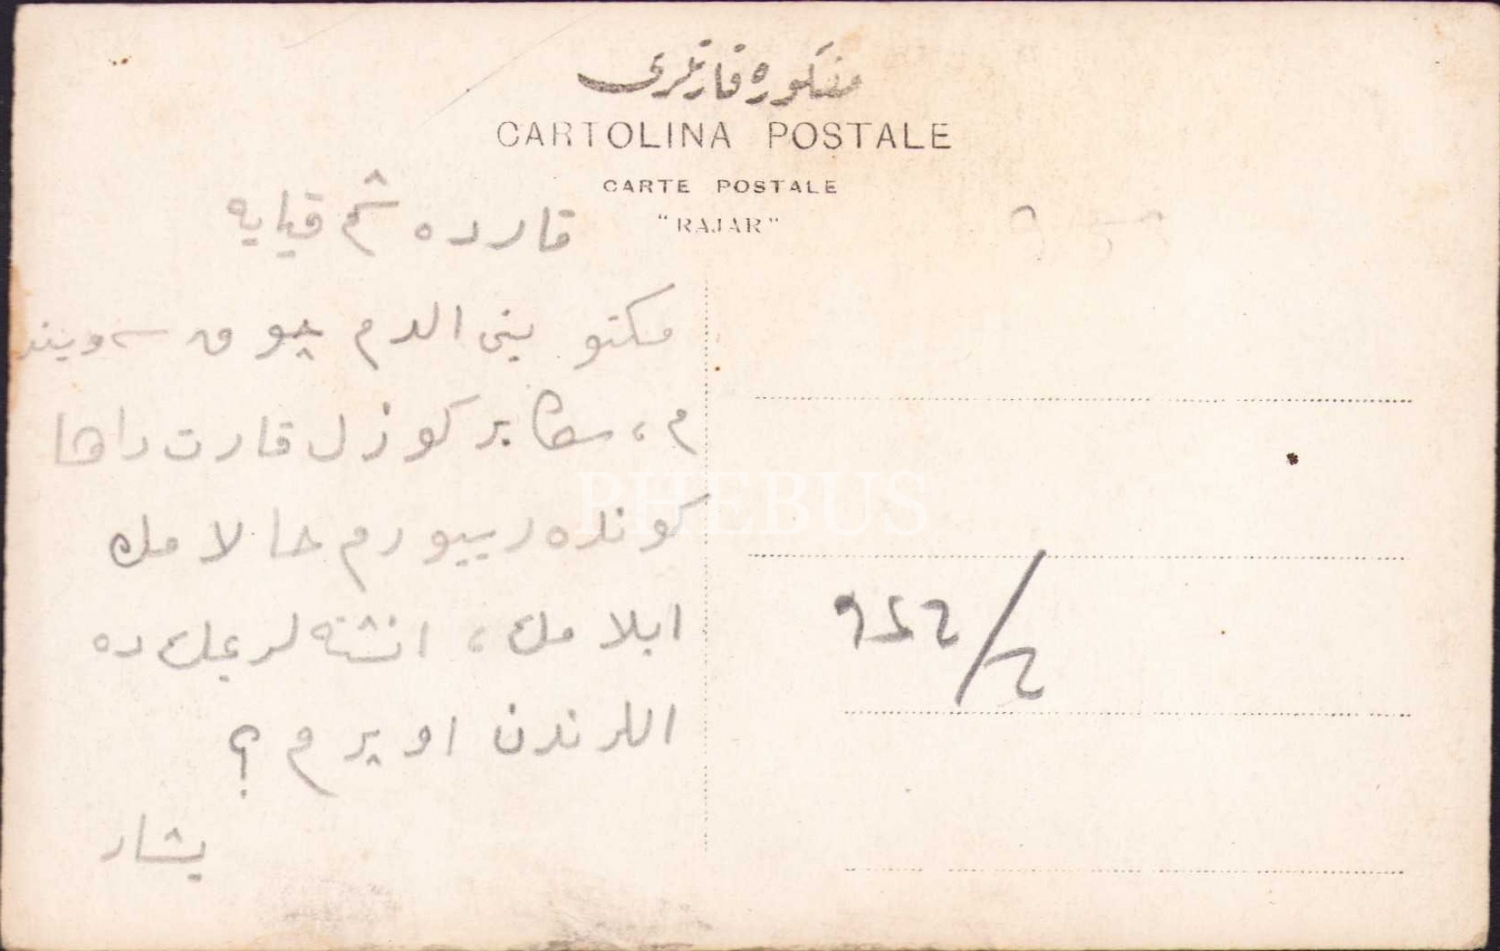 مفكوره قارتلرى
CARTOLINA POSTALE
CARTE POSTALE
"RAJAR"
قارده شم قيايه
مكتو بنى الدم چوق سويند
م، سكا بر كوزل قارت داها
كونده رييورم خالا مك
ابلا مك، انشته لر يمك ده
اللرندن اوپرم؟
يشار
PHEBUS